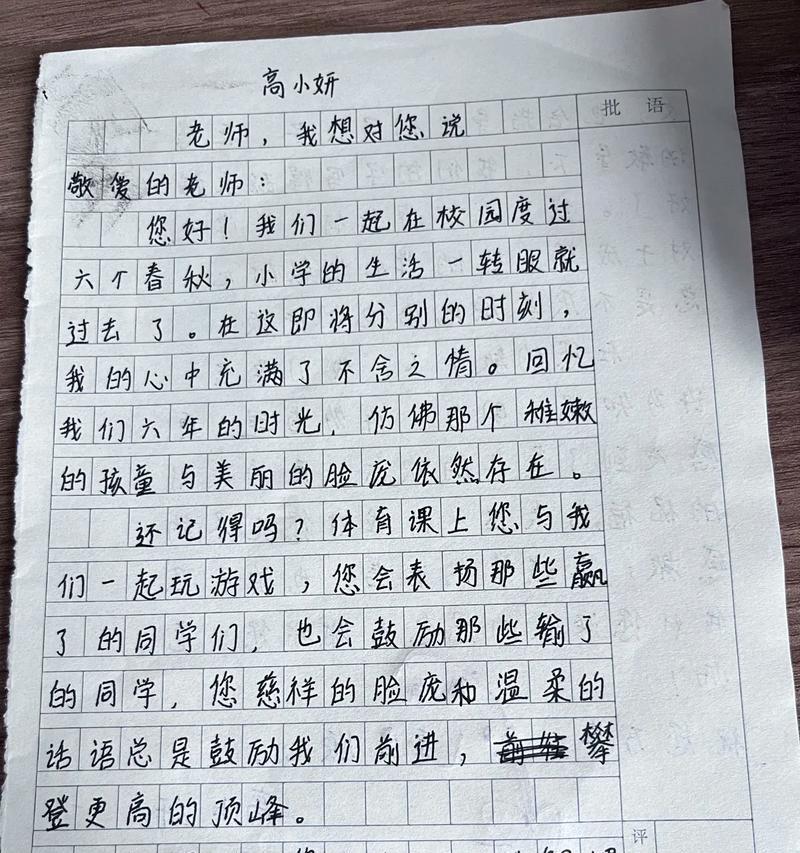 高小妍
批语
老师，我想对您说
敬爱的老师：
您好！我们一起在校园度过
六个春秋，小学的生活一转眼就
过去了。在这即将分别的时刻，
我的心中充满了不舍之情。回忆
我们六年的时光，仿佛那个稚嫩
的孩童与美丽的脸庞依然存在。
还记得吗？体育课上您与我
们一起玩游戏，您会表扬那些赢
了的同学们，也会鼓励那些输了
的同学，您慈祥的脸庞和温柔的
话语总是鼓励我们前进，攀
登更高的顶峰。
评